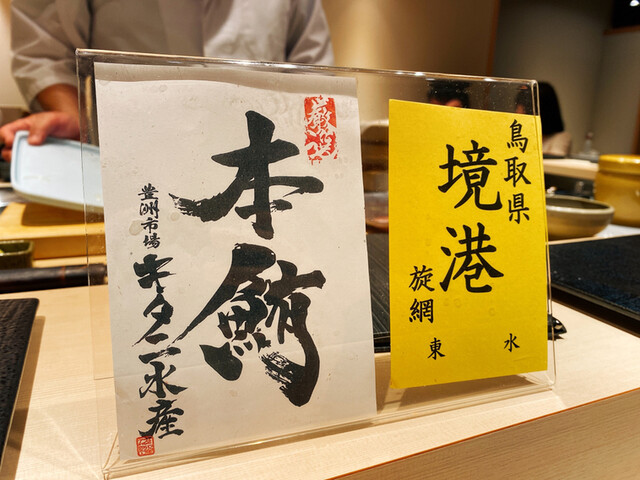 厳選
本鮪
豊洲市場
キタニ水産
鳥取県
境港
旋網
東
水